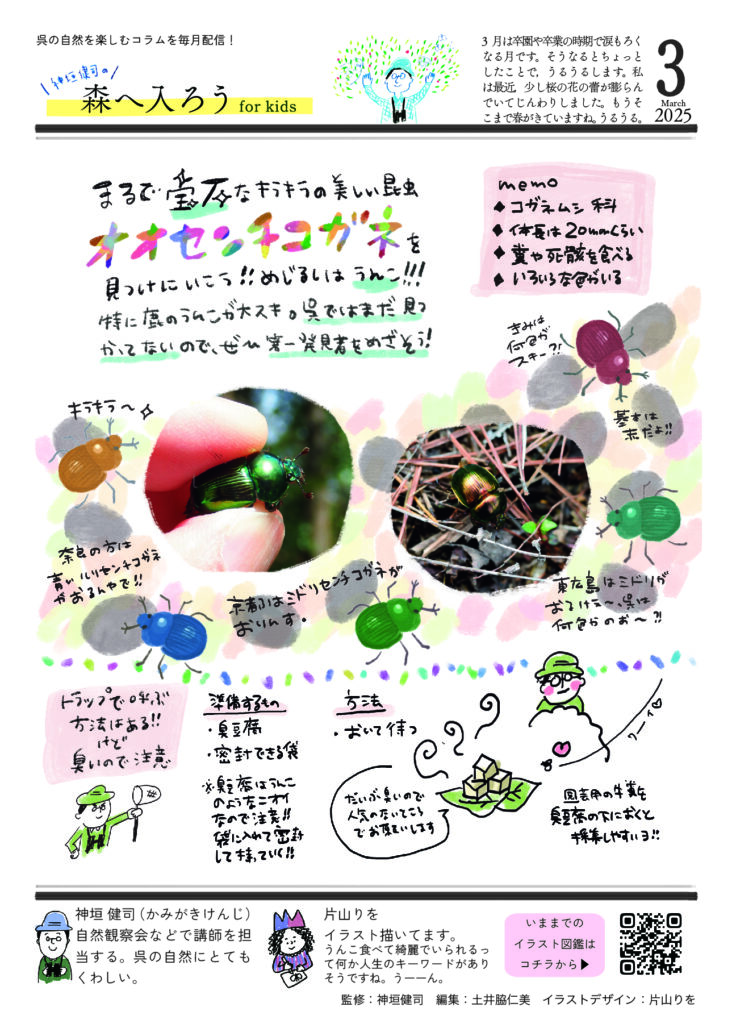 呉の自然を楽しむコラムを毎月配信！
神垣健司の
森へ入ろう for kids
3月は卒園や卒業の時期で涙もろく
なる月です。そうなるとちょっと
したことで，うるうるします。私
は最近，少し桜の花の蕾が膨らん
でいてじんわりしました。もうそ
こまで春がきていますね。うるうる。
3
March
2025
まるで宝石なキラキラの美しい昆虫
オオセンチコガネを
見つけにいこう!!めじるしはうんこ!!!
特に鹿のうんこが大スキ。呉ではまだ見つ
かってないので、ぜひ第一発見者をめざそう!
memo
◆コガネムシ科
◆体長は20mmくらい
◆糞や死骸を食べる
◆いろいろな色がいる
きみは
何色が
スキー?!
基本は
赤だよ!!
キラキラ〜
奈良の方は
青いルリセンチコガネ
がおるんやで!!
京都はミドリセンチコガネが
おりんす。
東広島はミドリが
おるけぇ〜、呉は
何色かのお〜?!
トラップで呼ぶ
方法はある!!
けど
臭いので注意
準備するもの
・臭豆腐
・密封できる袋
※臭豆腐はうんこ
のようなニオイ
なので注意!!
袋に入れて密封
して持っていく!!
方法
・おいて待つ
だいぶ臭いので
人気のないところ
でお願いします
固定用の牛糞を
臭豆腐の下におくと
採集しやすいヨ!!
神垣 健司（かみがきけんじ）
自然観察会などで講師を担
当する。呉の自然にとても
くわしい。
片山りを
イラスト描いてます。
うんこ食べて綺麗でいられるっ
て何か人生のキーワードがあり
そうですね。うーーん。
いままでの
イラスト図鑑は
コチラから▶
監修：神垣健司　編集：土井脇仁美　イラストデザイン：片山りを